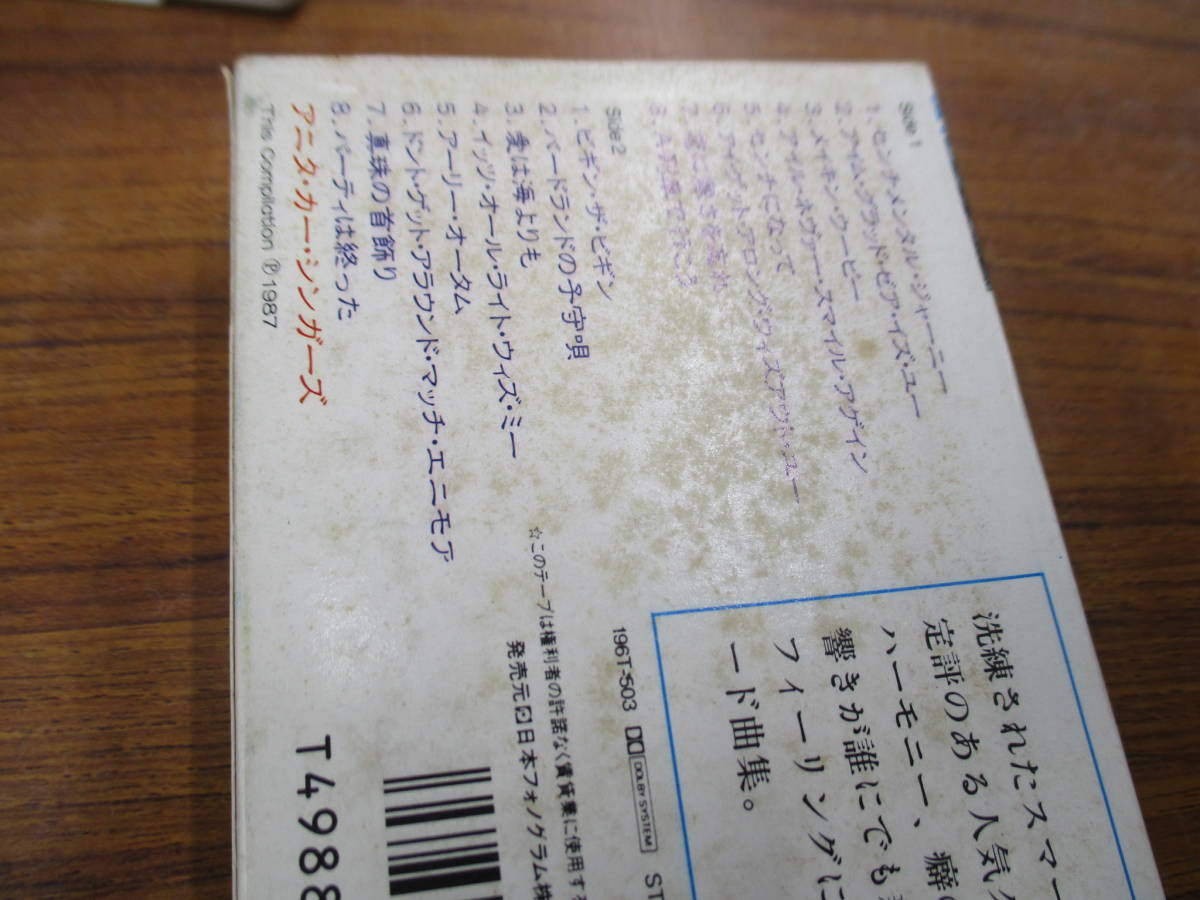 Side 1
1. センチメンタル・ジャーニー
2. アイム・グラッド・ゼア・イズ・ユー
3. メイキン・ウーピー
4. アイル・ネヴァー・スマイル・アゲイン
5. センチになって
6. アイ・ゲット・アロング・ウィズアウト・ユー
8. A列車で行こう
Side 2
1. ビギン・ザ・ビギン
2. バードランドの子守唄
3. 愛は海よりも
4. イッツ・オール・ライト・ウィズ・ミー
5. アーリー・オータム
6. ドント・ゲット・アラウンド・マッチ・エニモア
7. 真珠の首飾り
8. パーティは終った
アニタ・カー・シンガーズ
This Compilation Ⓟ1987
洗練されたスマー
定評のある人気グ
ハーモニー、癖の
響きが誰にでも
フィーリングに
ード曲集。
196T-503 DOLBY SYSTEM ST
☆このテープは権利者の許諾なく賃貸業に使用する
発売元 日本フォノグラム株
T4988